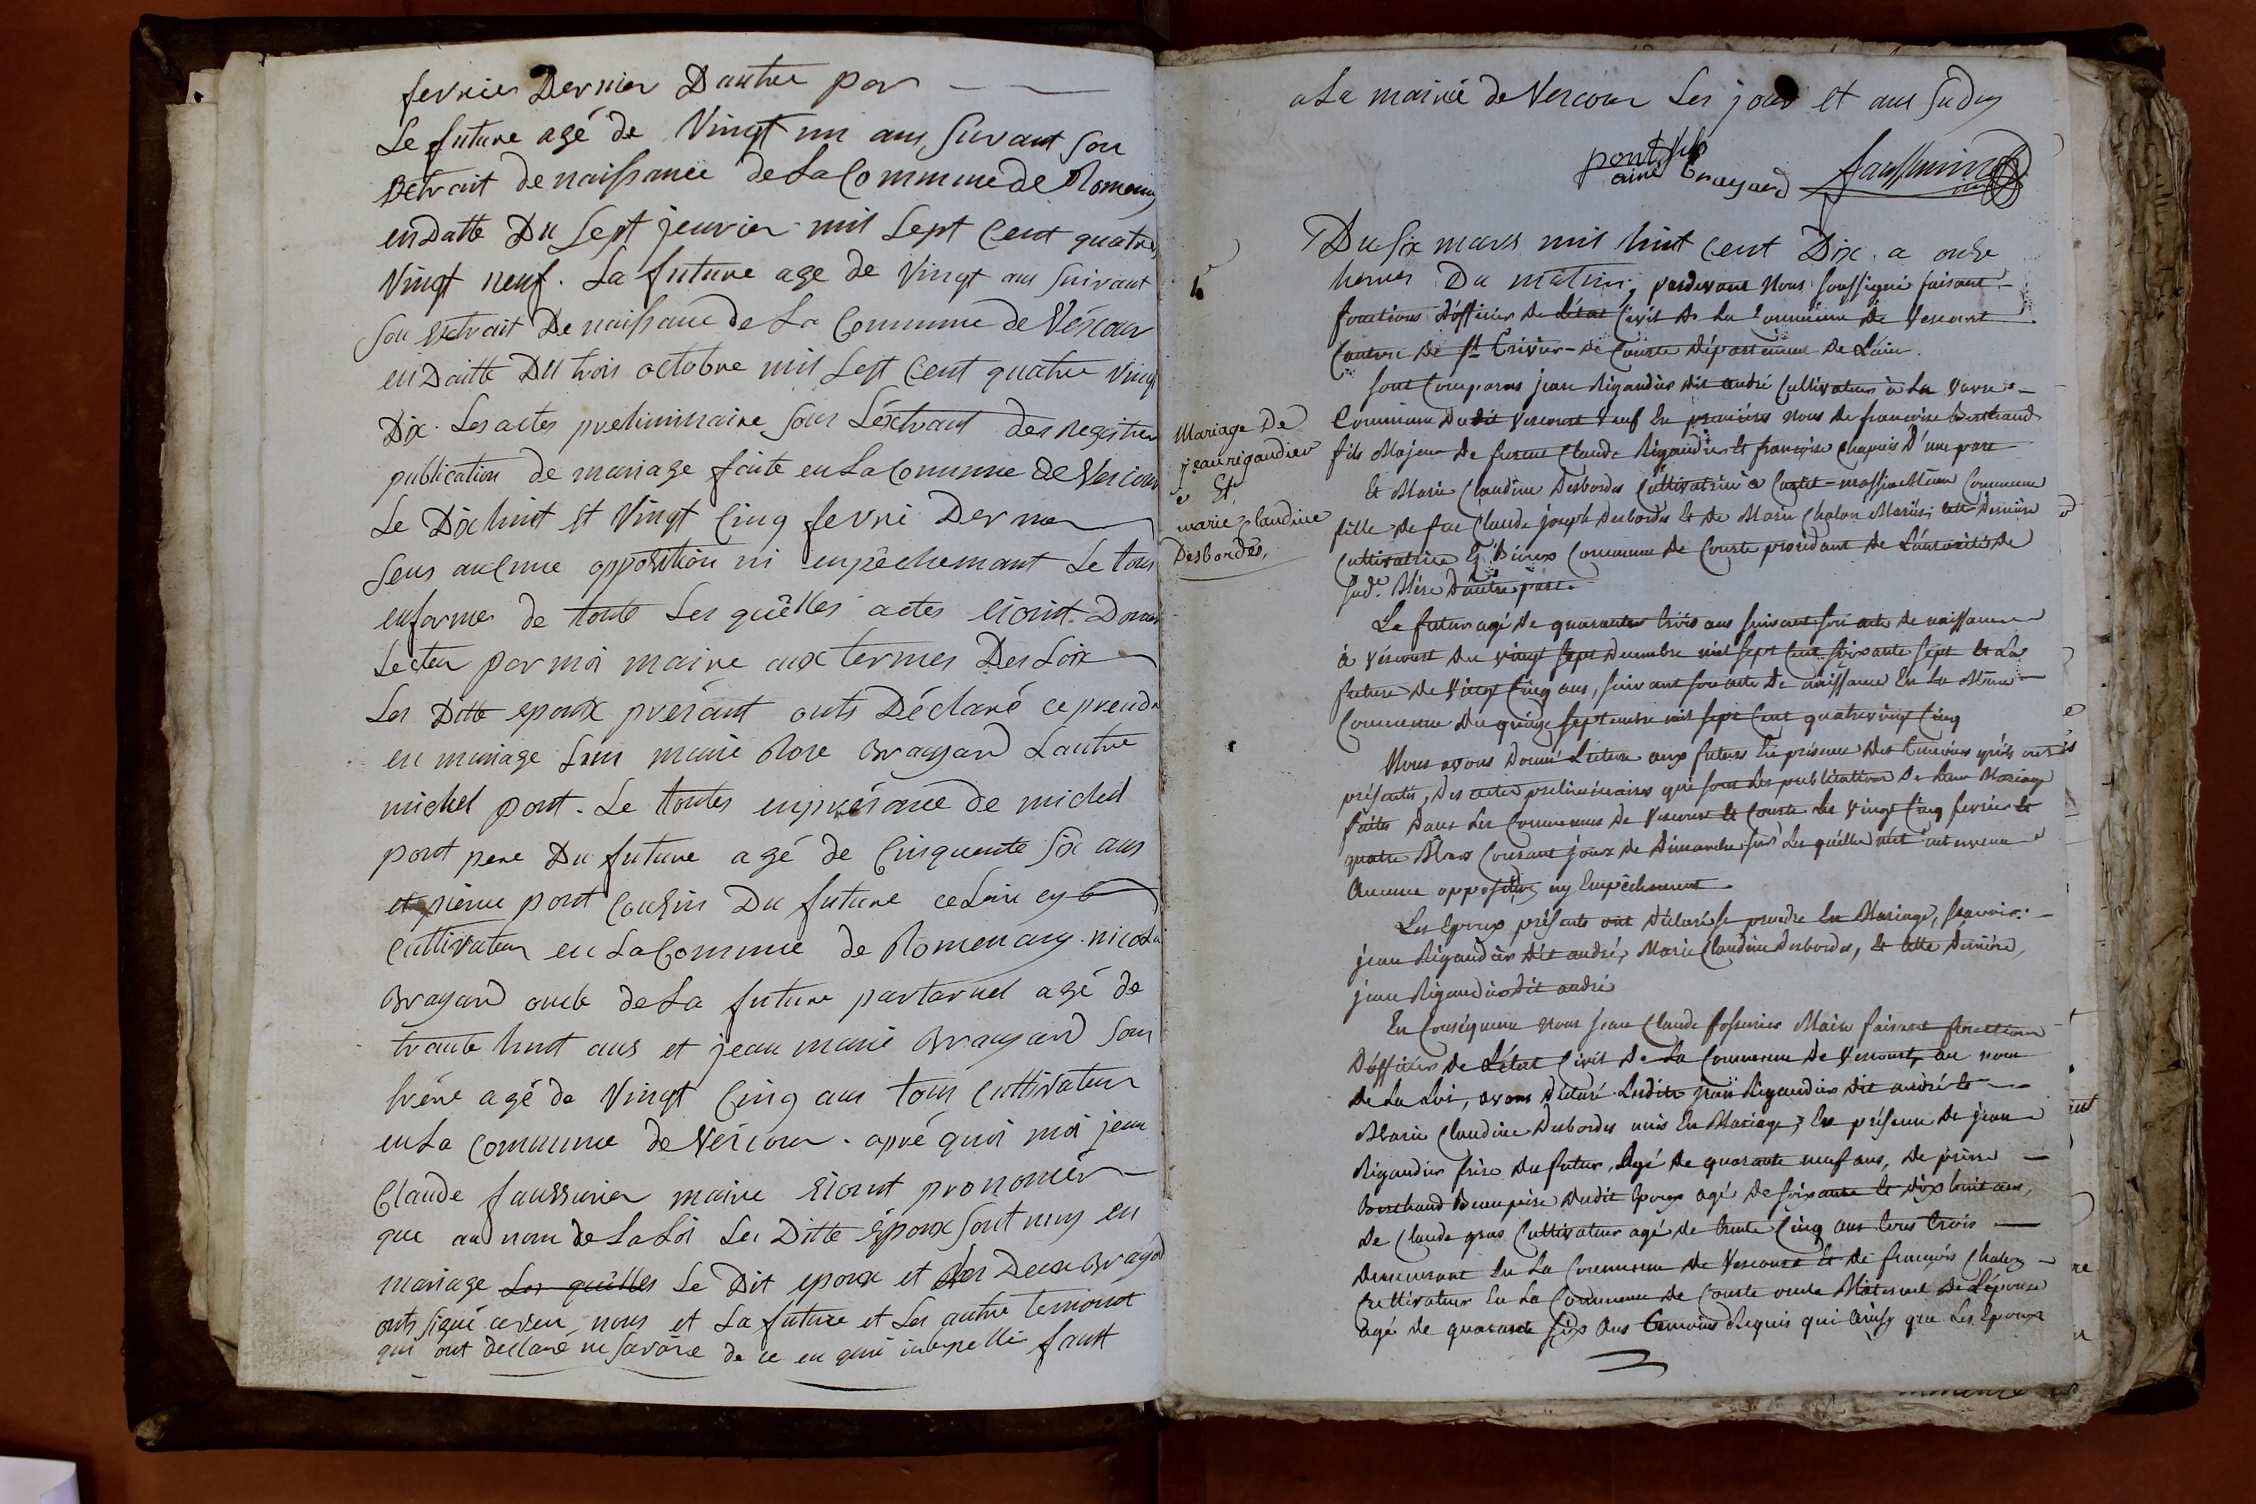 fevrier Dernier Dautre par
Le future agé de Vingt un ans suivant son
Extrait de naissance de La Commune de Romenay
en Datte Du Sept jenvier mil Sept Cent quatre
Vingt neuf. La future age de Vingt ans suivant
Son extrait De naissance de La Commune de Vescour
en Daitte Du trois octobre mil Sept Cent quatre Vingt
Dix. Les actes preliminaire sons L'éxtrait des Registre
publication de mariage faite en La Commune de Vescour
Le Dix huit et Vingt Cinq fevri Dernier
sens auCune opposition ni enpêchemant Le tous
enforme de toute Les quelles actes aiont Donné
Lecteur par moi maire aux termes Des Loix
Les Ditte epoux présant onts Déclaré ce prendre
en mariage Lun marie Rose Brayard Lautre
michel pont. Le toutes enprésance de michel
pont pere Du future agé de Cinquente Six ans
et pierre pont Cousin Du future
Cultivateur en La Commune de Romenay. nicolas
Brayard oncle de La future partarnel agé de
trante huit ans et jean marie Brayard son
frère agé de Vingt Cinq ans tous Cultivateur
en La Commune de Vescour. apré quoi moi jean
Claude faussurier maire aiant pronomér
que au nom de La Loi Les Ditte Époux sont unis en
mariage Les quelles Le Dit epoux et Les Deux Brayard
onts signé avec nous et La future et Les autre temoint
qui ont déclaré ne savoire de ce en quié inteapellé faitt
a La mairie de Vescour Les jour et ans sudis
pont fils
ainé Brayard faussurier
4
Du Six mars mil huit cent Dix a onze
heures Du matin, pardevant Nous soussigné faisant
fonctions d'officier de L'état Civil de La Commune de Vescourt
Canton de St Trivier-de Courte département de L'ain.
Mariage De
jean rigaudier
Et
marie claudine
Desbordes.
sont Comparus jean Rigaudier dit andré Cultivateur à La Varre
Commune Dudit Vescourt Veuf En premières noces de françoise Berthaud
fils Majeur de furent Claude Rigaudier et françoise Chapuis D'une part
Et Marie Claudine Desbordes Cultivatrice à Commune
fille de feu Claude joseph Desbordes Et de Marie Chalon Mariés, cette Dernière
Cultivatrice Commune de Courte procédant de L'autorité de
sade. Mère D'autre part.
Le futur agé de quarante trois ans suivant son acte de naissance
à Vescourt du vingt sept decembre mil sept Cent soixante sept et La
future de Vingt Cinq ans, suivant son acte de naissance En La Même
Commune du quinze septembre mil sept Cent quatrevingt Cinq
Nous avons Donné Lecture aux futurs En présence des temoins qu'ils ont
présentés, des actes preliminaires qui sont Les publications de Leur Mariage
faites dans Les Communes de Vescourt et Courte Les Vingt Cinq fevrier et
quatre Mars Courant jours de Dimanche sur Les quelles n'est intervenue
Aucune opposition ny Empêchement.
Les Epoux présents ont déclaré se prendre En Mariage, sçavoir:
jean Rigaudier dit andré, Marie Claudine Desbordes, et cette dernière,
jean Rigaudier dit andré
En Conséquence Nous Jean Claude fosserier Maire faisant fonction
D'officier de L'état Civil de La Commune de Vescourt, au nom
de La Loi, avons déclaré Lesdits jean Rigaudier dit andré et
Marie Claudine Desbordes unis En Mariage, En présence de jean
Rigaudier frère du futur, Agé de quarante neuf ans, de pierre
Berthaud Beaupère dudit Epoux agé de soixante et dix huit ans,
de Claude gras Cultivateur agé de trente Cinq ans tous trois
demeurant En La Commune de Vescourt Et de françois Chalon
Cultivateur En La Commune de Courte oncle Maternel de L'épouse
agé de quarante six ans temoins Requis qui ainsy que Les Epoux